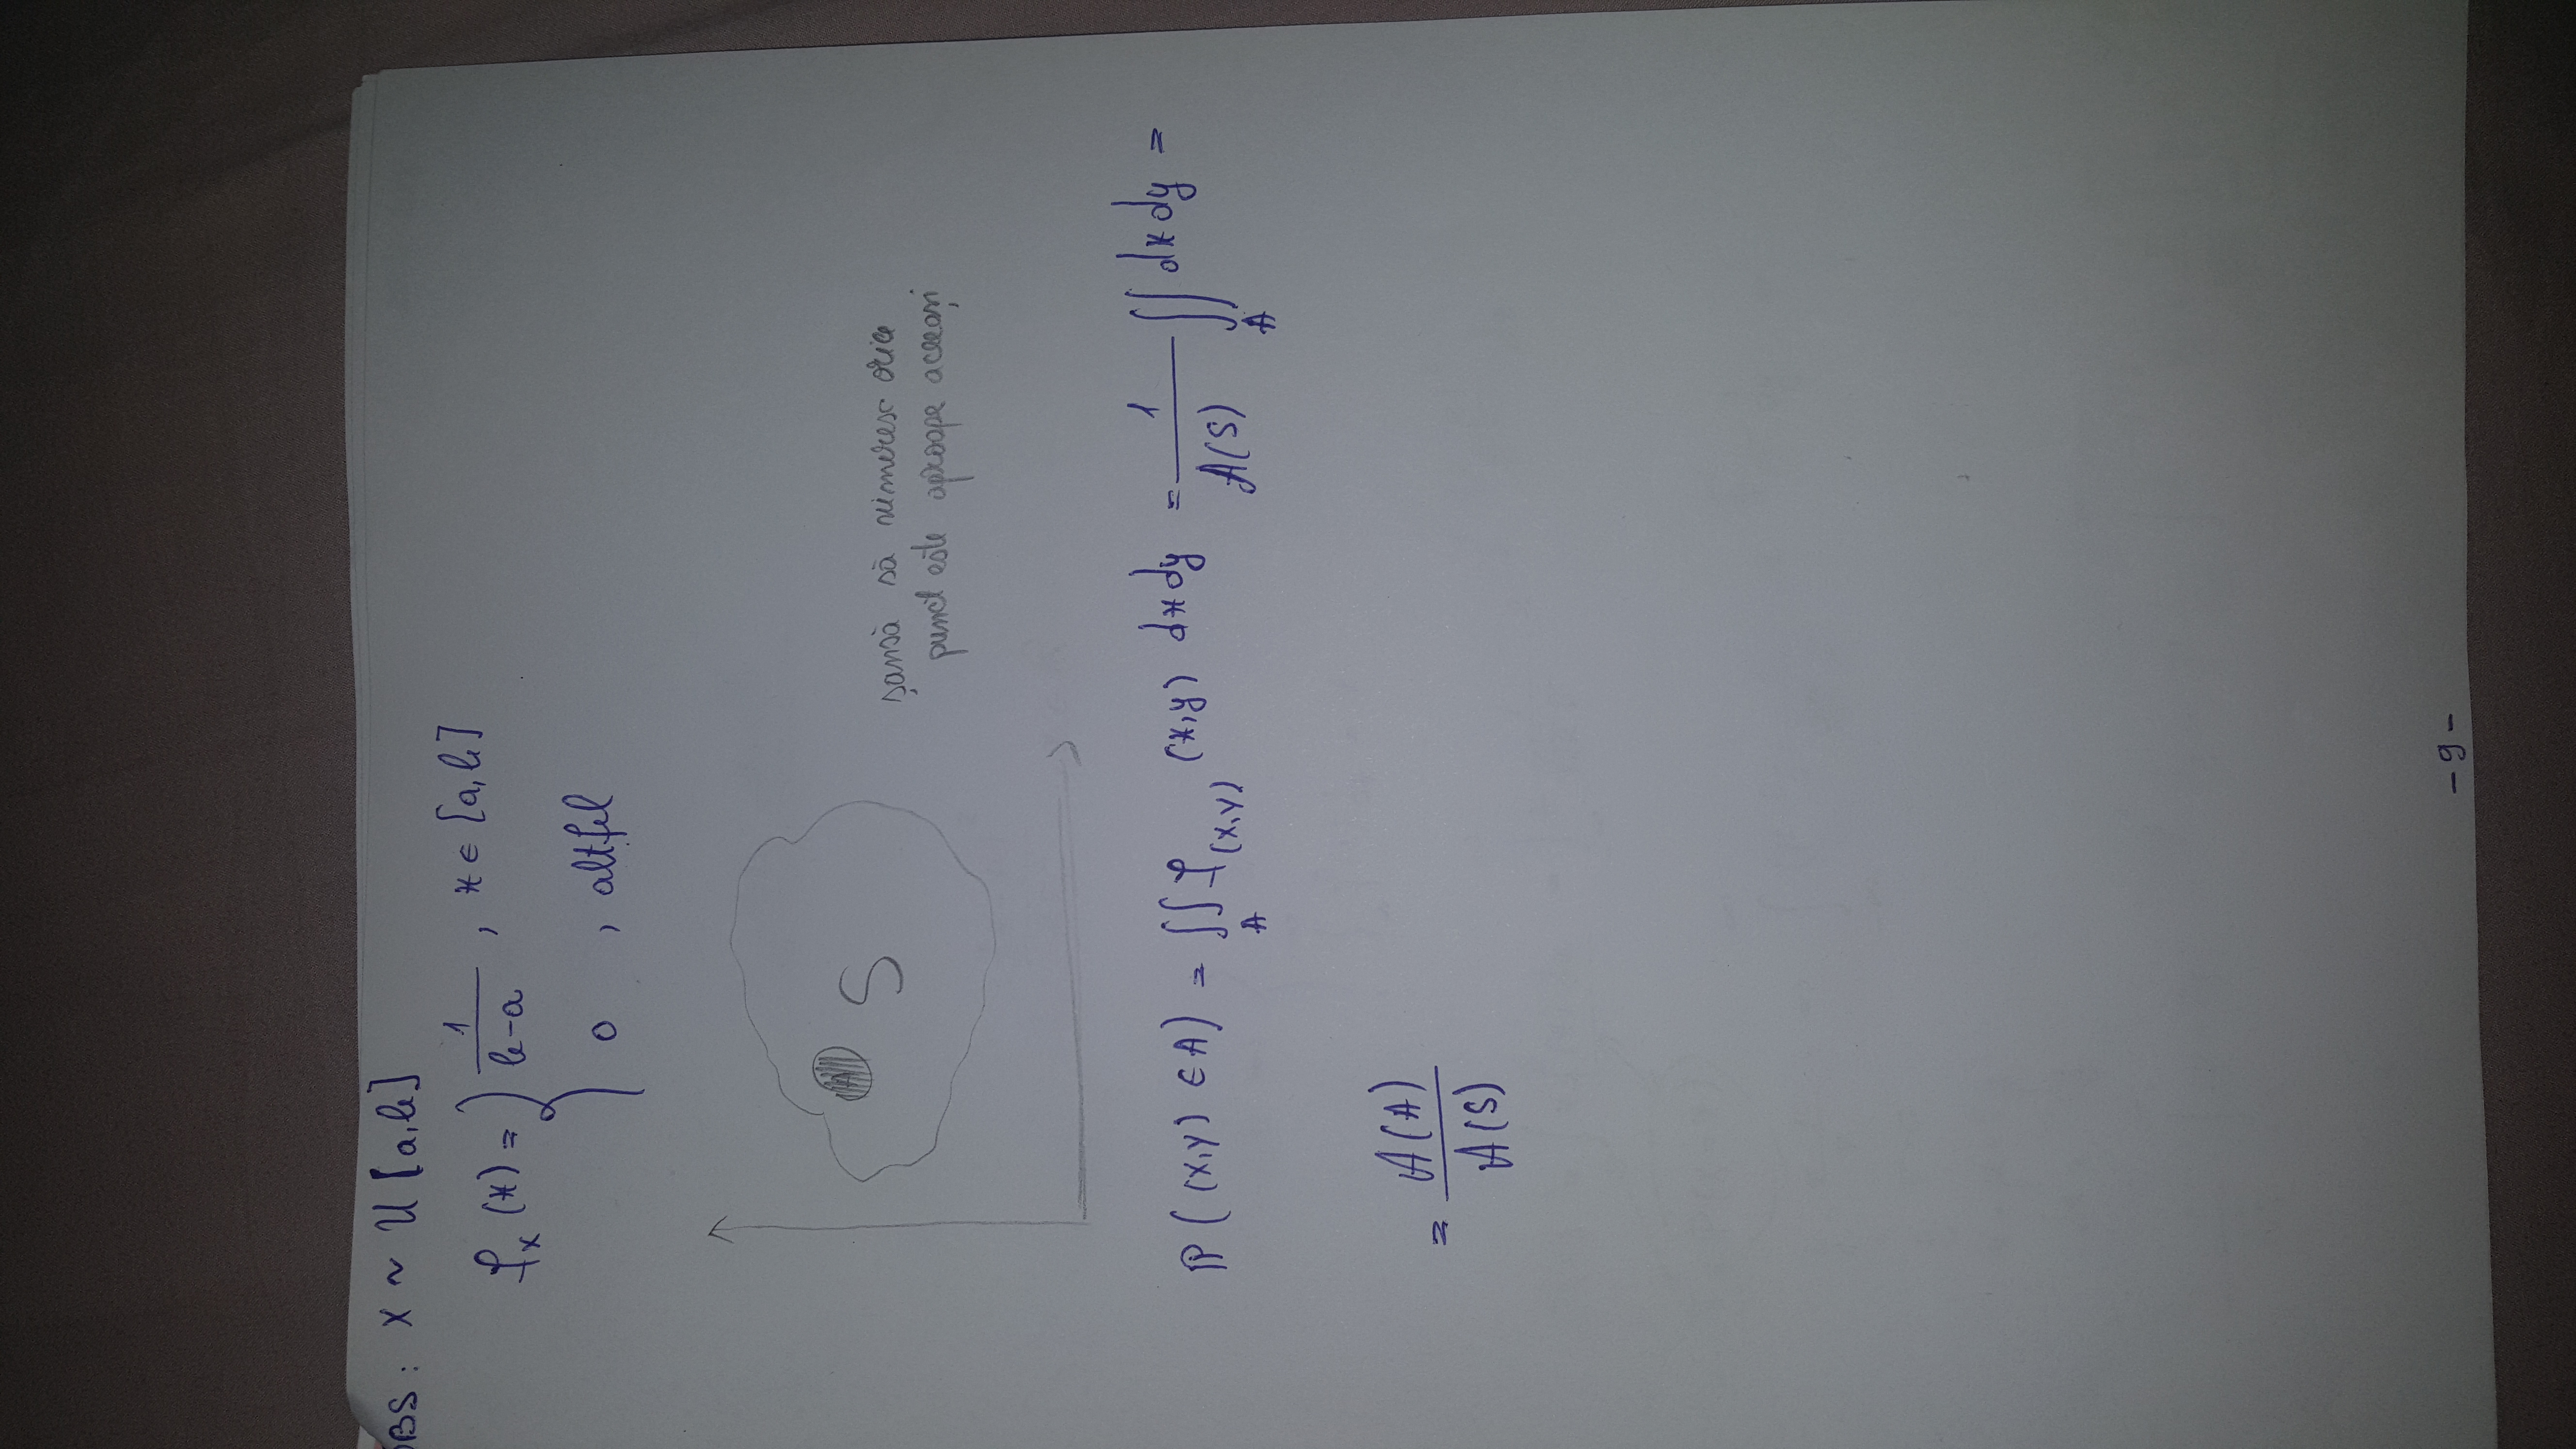 OBS: X ~ U [a,b]
f_X (x) = { 1/(b-a) , x ∈ [a,b]
0 , altfel
A
S
șansă să nimeresc orice
punct este aproape aceeași
P((X,Y) ∈ A) = ∬_A f_(X,Y) (x,y) dx dy = 1/A(S) ∬_A dx dy =
= A(A)/A(S)
- 9 -